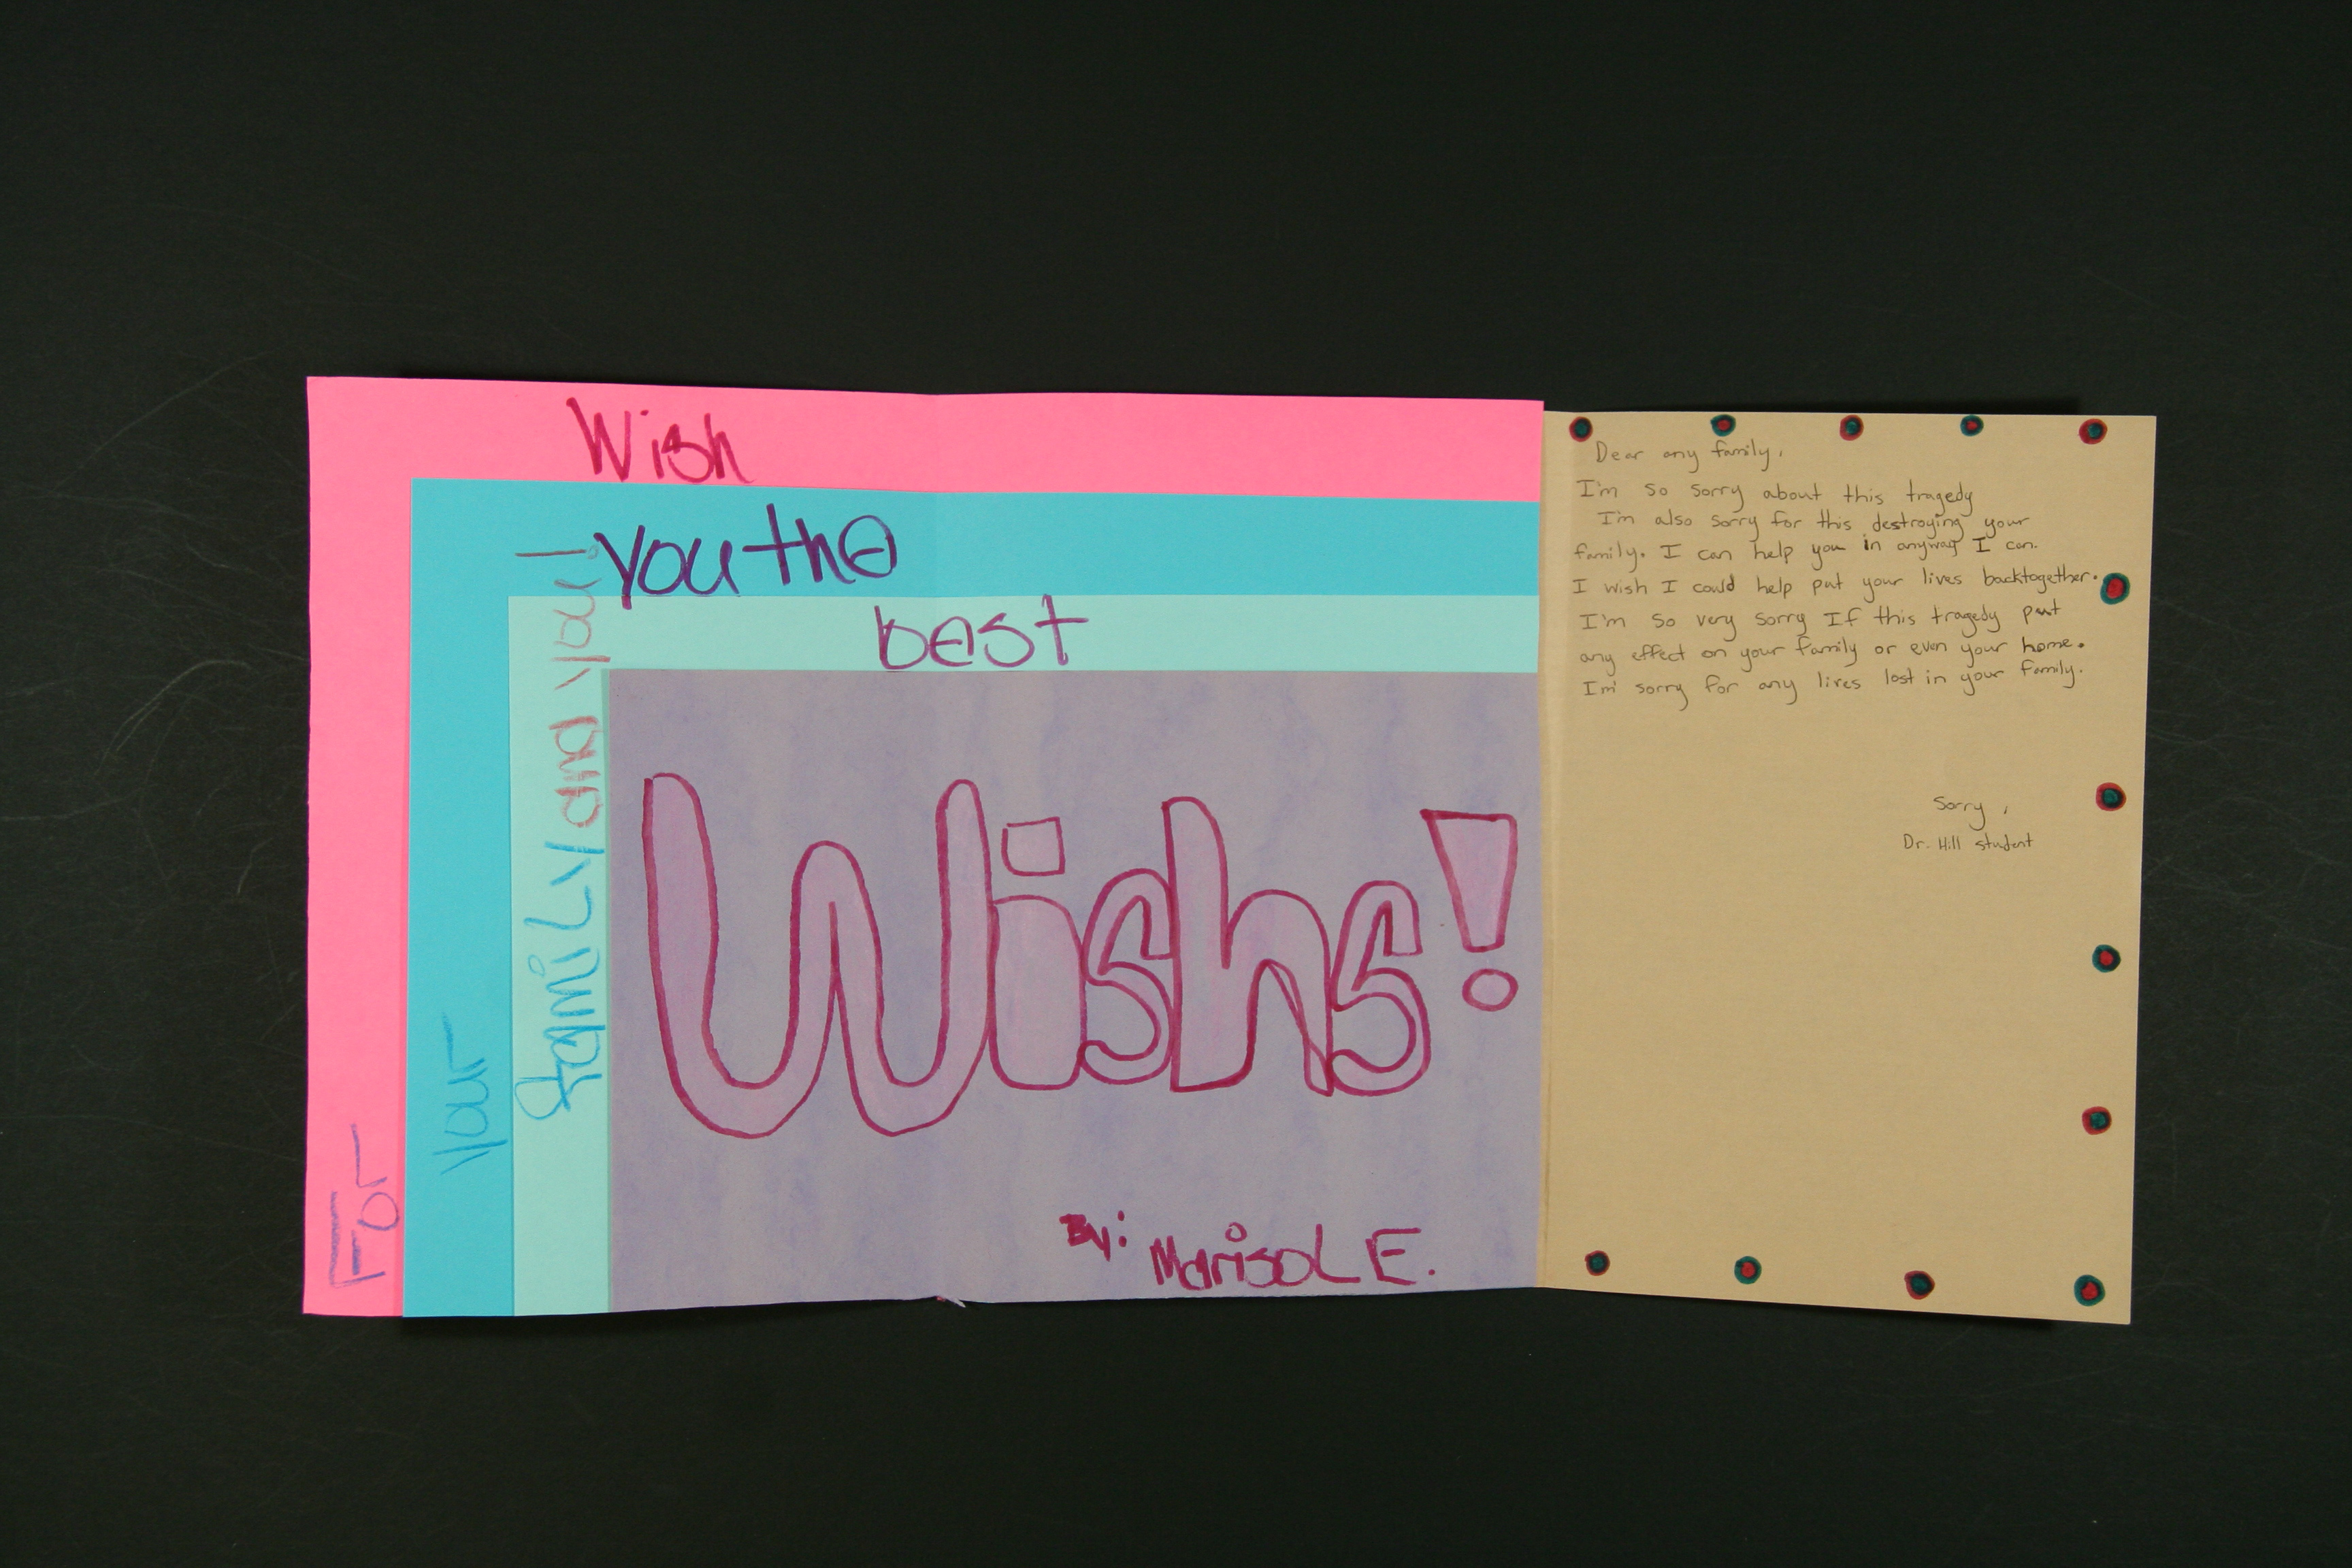 Wish
you the
best
Wishs!
By: Marisol E.
For
your
family and you!
Dear any family,
I'm so sorry about this tragedy
I'm also sorry for this destroying your
family. I can help you in anyway I can.
I wish I could help put your lives backtogether.
I'm so very sorry If this tragedy put
any effect on your family or even your home.
I'm sorry for any lives lost in your family.
Sorry,
Dr. Hill student